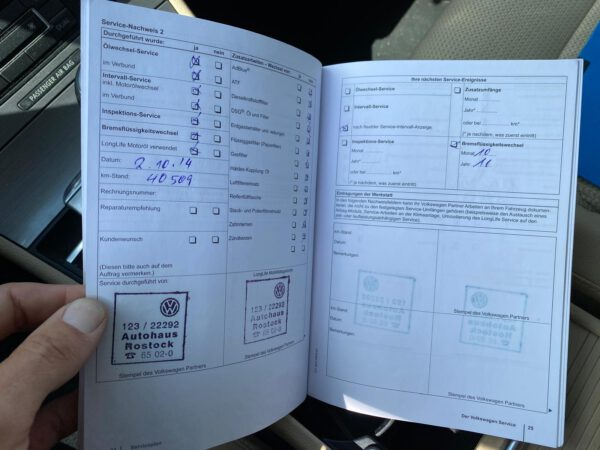 PASSENGER AIR BAG
Service-Nachweis 2
Durchgeführt wurde: ja nein
Ölwechsel-Service
im Verbund
Intervall-Service
inkl. Motorölwechsel
im Verbund
Inspektions-Service
Bremsflüssigkeitswechsel
LongLife Motoröl verwendet
Datum: 2.10.14
km-Stand: 40509
Rechnungsnummer:
Reparaturempfehlung
Kundenwunsch
(Diesen bitte auch auf dem
Auftrag vermerken.)
Service durchgeführt von:
123 / 22292
Autohaus
Rostock
☎ 65 02-0
Stempel des Volkswagen Partners
Zusatzarbeiten – Wechsel von: ja
AdBlue
ATF
Dieselkraftstofffilter
DSG®: Öl und Filter
Gasfilter
Haldex-Kupplung: Öl
Luftfiltereinsatz
Reifenfüllflasche
Staub- und Pollenfiltereinsatz
Zahnriemen
Zündkerzen
LongLife Mobilitätsgarantie
123 / 22292
Autohaus
Rostock
☎ 65 02-0
Stempel des Volkswagen Partners
Ihre nächsten Service-Ereignisse
Ölwechsel-Service
Intervall-Service
nach flexibler Service-Intervall-Anzeige.
Inspektions-Service
Monat
Jahr
oder bei km*
(* je nachdem, was zuerst eintritt)
Zusatzumfänge
Monat
Jahr*
oder bei km*
(* je nachdem, was zuerst eintritt)
Bremsflüssigkeitswechsel
Monat 10
Jahr
Eintragungen der Werkstatt
In den folgenden Nachweisfeldern kann Ihr Volkswagen Partner Arbeiten an Ihrem Fahrzeug dokumen-
tieren, die nicht zu den festgelegten Service-Umfängen gehören (beispielsweise den Austausch eines
Airbag Moduls, Service-Arbeiten an der Klimaanlage, Umstellung des LongLife Service auf den
zeit- oder laufleistungsabhängigen Service).
km-Stand:
Datum:
Bemerkungen:
Stempel des Volkswagen Partners
km-Stand:
Datum:
Bemerkungen:
Stempel des Volkswagen Partners
Der Volkswagen Service 25
Serviceplan